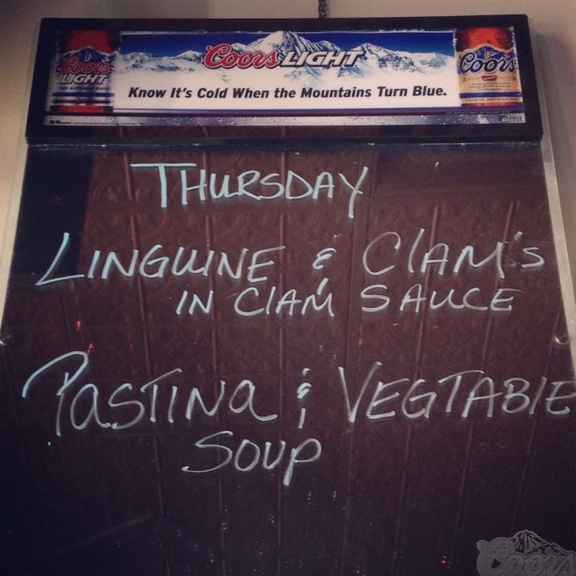 Coors LIGHT
Coors LIGHT
Coors
Know It's Cold When the Mountains Turn Blue.
THURSDAY
LINGUINE & ClAM's
IN ClAM SAUCE
PASTINA & VEGTABlE
SOUP
Coors